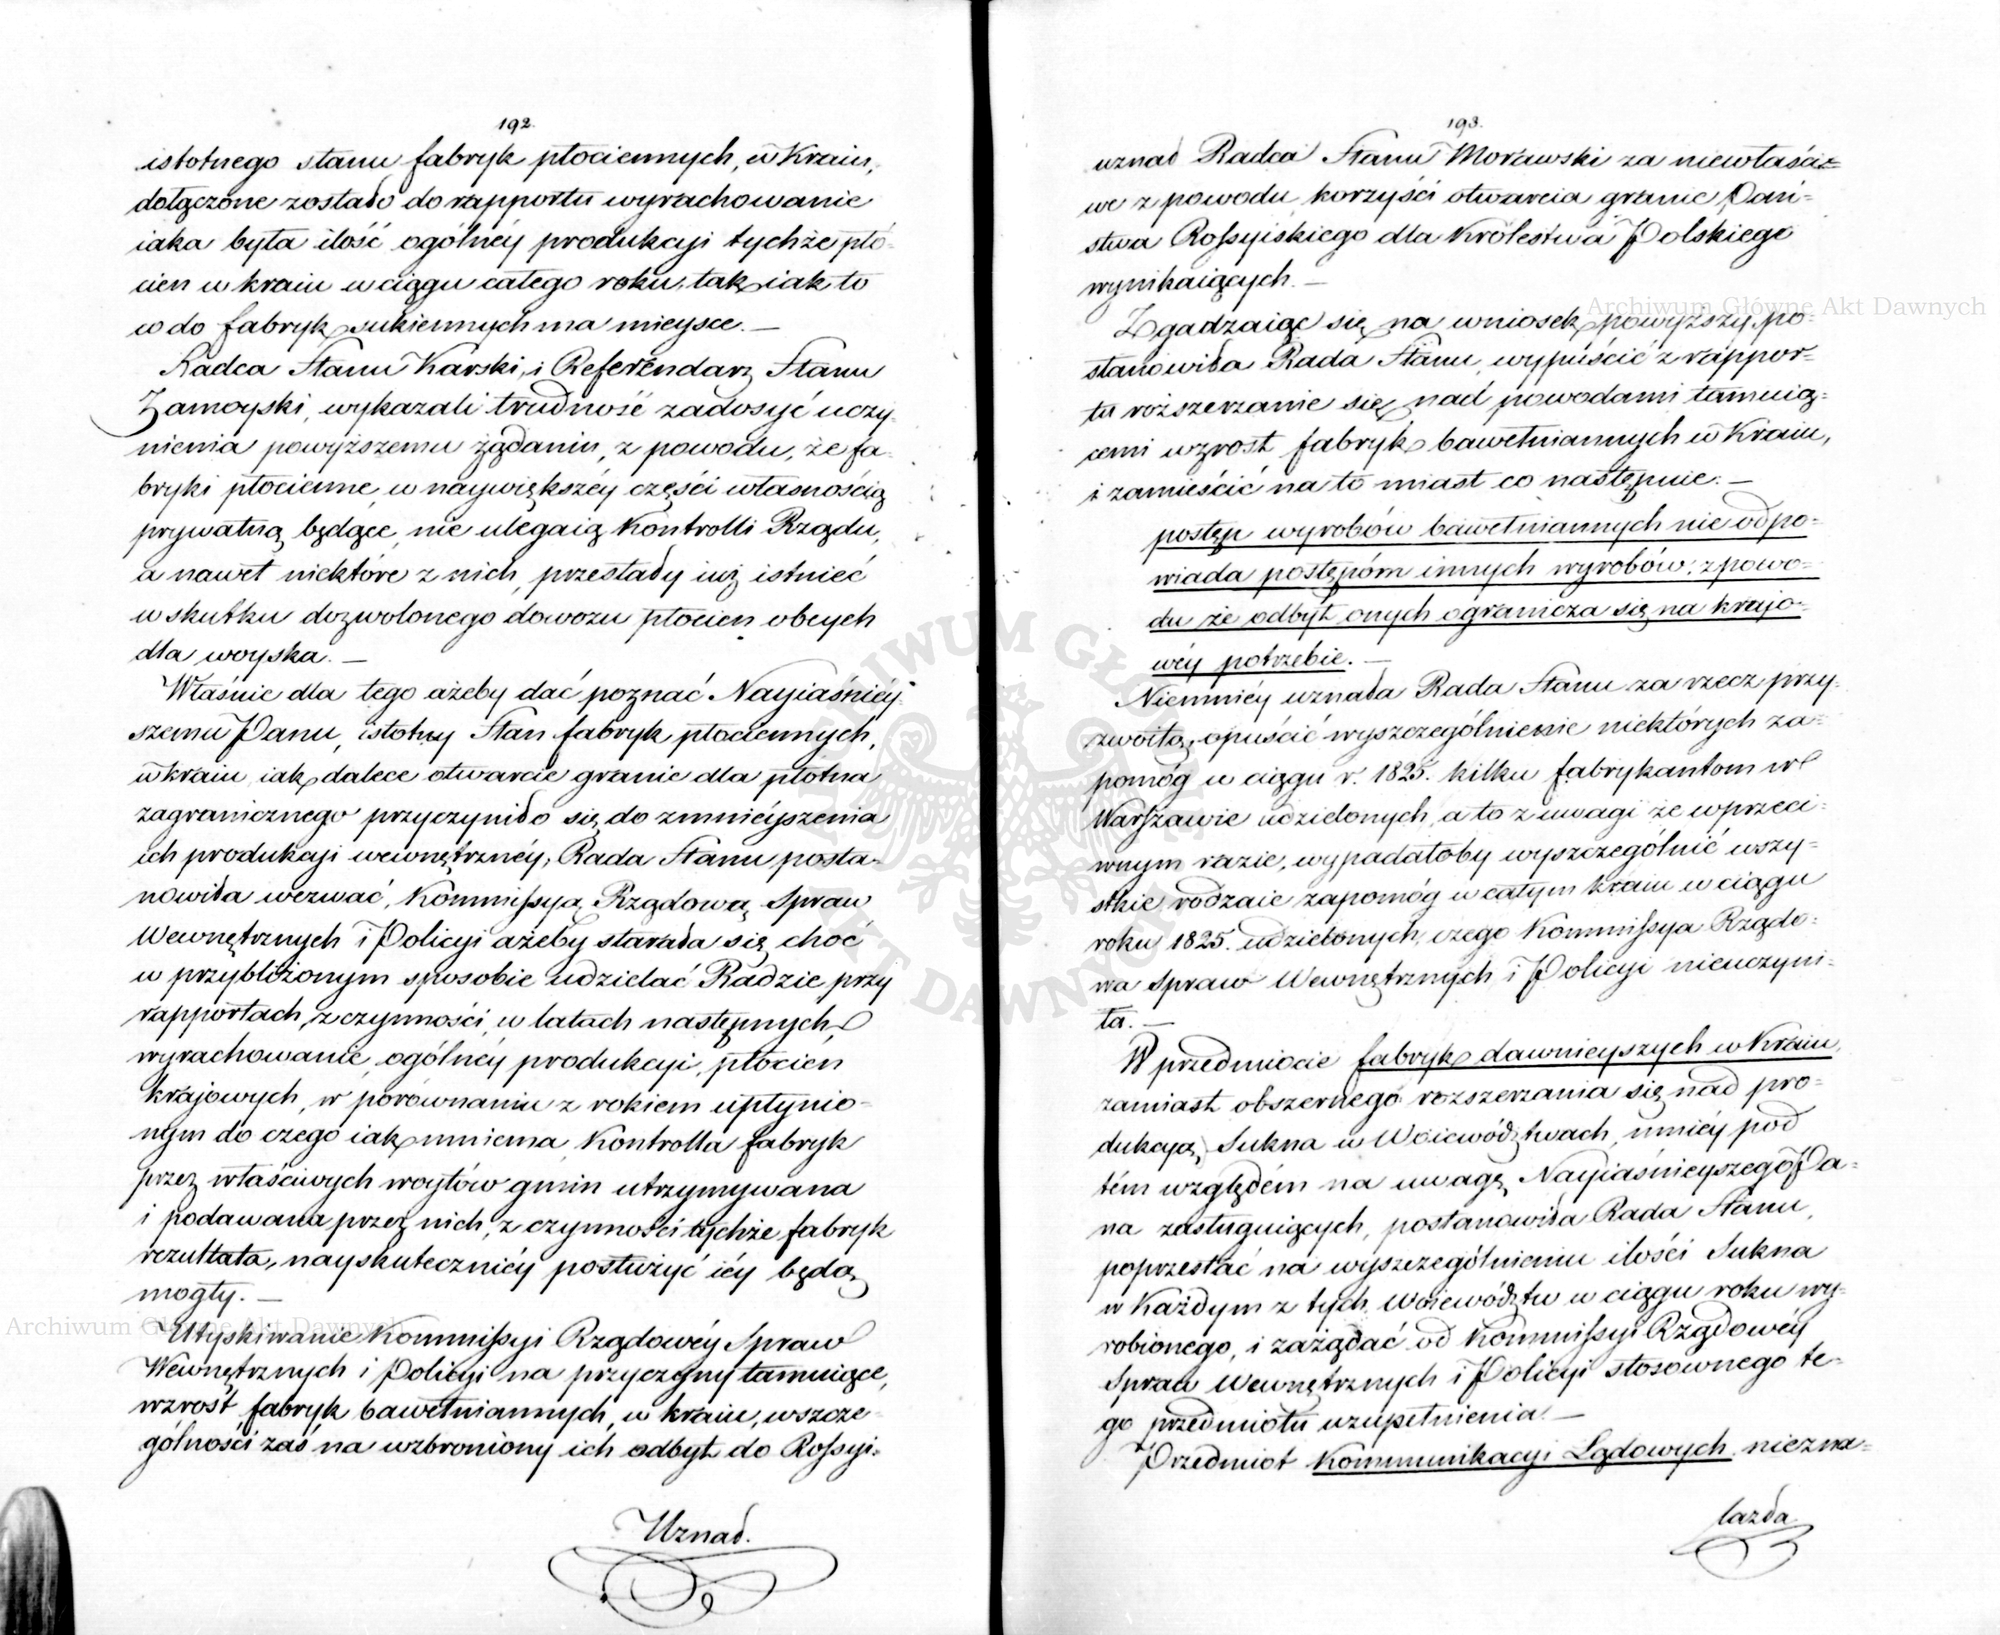 192.
istotnego stanu fabryk płóciennych, w Kraiu,
dołączone zostało do rapportu wyrachowanie
iaka była ilość ogólnéy produkcyi tychże płó-
cien w kraiu w ciągu całego roku, tak iak to
w do fabryk sukiennych ma mieysce. —
Radca Stanu Karski, i Referendarz Stanu
Zamoyski, wykazali trudność zadosyć uczy-
nienia powyższemu żądaniu, z powodu, że fa-
bryki płócienne w naywiększéy części własnością
prywatną będące, nie ulegaią Kontrolli Rządu,
a nawet niektóre z nich, przestały iuż istnieć
w skutku dozwolonego dowozu płócien obcych
dla woyska. —
Właśnie dla tego ażeby dać poznać Nayiaśniéy-
szemu Panu, istotny Stan fabryk płóciennych,
w kraiu, iak dalece otwarcie granic dla płótna
zagranicznego przyczyniło się do zmnieyszenia
ich produkcyi wewnętrznéy, Rada Stanu posta-
nowiła wezwać, Kommissyą Rządową Spraw
Wewnętrznych i Policyi ażeby starała się choć
w przybliżonym sposobie udzielać Radzie przy
rapportach z czynności w latach następnych,
wyrachowanie ogólnéy produkcyi, płócien
krajowych, w porównaniu z rokiem upłynio-
nym do czego iak mniema, Kontrolla fabryk
przez właściwych woytów gmin utrzymywana
i podawana przez nich, z czynności tychże fabryk
rezultata, nayskuteczniéy posłużyć iéy będą
mogły. —
Utyskiwanie Kommissyi Rządowéy Spraw
Wewnętrznych i Policyi na przyczyny tamuiące,
wzrost fabryk bawełniannych, w kraiu, wszcze-
gólności zaś na wzbroniony ich odbyt do Rossyi.
Uznał.
193.
uznał Radca Stanu Morawski za niewłaści-
we z powodu korzyści otwarcia granic Pań-
stwa Rossyiskiego dla Królestwa Polskiego
wynikaiących. —
Zgadzaiąc się na wniosek powyższy, po-
stanowiła Rada Stanu, wypuścić z rappor-
tu rozszerzanie się nad powodami tamuią-
cemi wzrost fabryk bawełniannych w Kraiu,
i zamieścić na to miast co następuie. —
postęp wyrobów bawełniannych nie odpo-
wiada postępóm innych wyrobów, z powo-
du że odbyt onych ogranicza się na krajo-
wéy potrzebie. —
Niemniéy uznała Rada Stanu za rzecz przy-
zwoitą, opuścić wyszczególnienie niektórych za-
pomóg w ciągu r. 1825. kilku fabrykantom w
Warszawie udzielonych, a to z uwagi że w przeci-
wnym razie, wypadałoby wyszczególnić wszy-
stkie rodzaie zapomóg w całym kraiu w ciągu
roku 1825. udzielonych, czego Kommissya Rządo-
wa Spraw Wewnętrznych i Policyi nieuczyni-
ła. —
W przedmiocie fabryk dawnieyszych w Kraiu,
zamiast obszernego rozszerzania się nad pro-
dukcyą, Sukna w Woiewództwach, mniéy pod
tém względem na uwagę Nayiaśnieyszego Pa-
na zasługuiących, postanowiła Rada Stanu,
poprzestać na wyszczególnieniu ilości Sukna
w Każdym z tych Woiewództw w ciągu roku wy-
robionego, i zażądać od Kommissyi Rządowéy
Spraw Wewnętrznych i Policyi stosownego te-
go przedmiotu uzupełnienia. —
Przedmiot Kommunikacyi Lądowych niezna-
lazła
Archiwum Główne Akt Dawnych
Archiwum Główne Akt Dawnych
ARCHIWUM GŁÓWNE AKT DAWNYCH